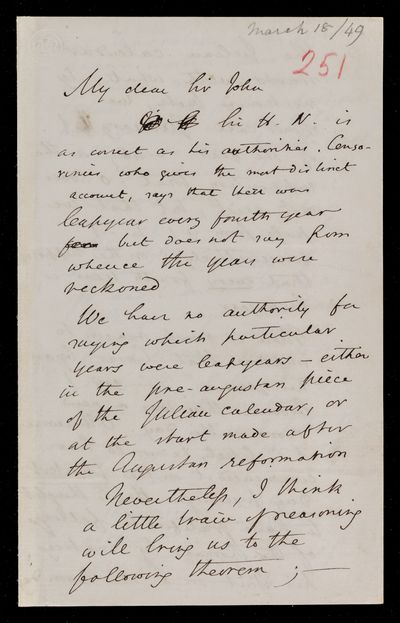 March 18/49
251
My dear Sir John
Sir H. N. is
as correct as his authorities. Censo-
rinus who gives the most distinct
account, says that there was
leapyear every fourth year
but does not say from
whence the years were
reckoned
We have no authority for
saying which particular
years were leapyears – either
in the pre-augustan piece
of the Julian calendar, or
at the start made after
the Augustan reformation
Nevertheless, I think
a little train of reasoning
will bring us to the
following theorem ; —